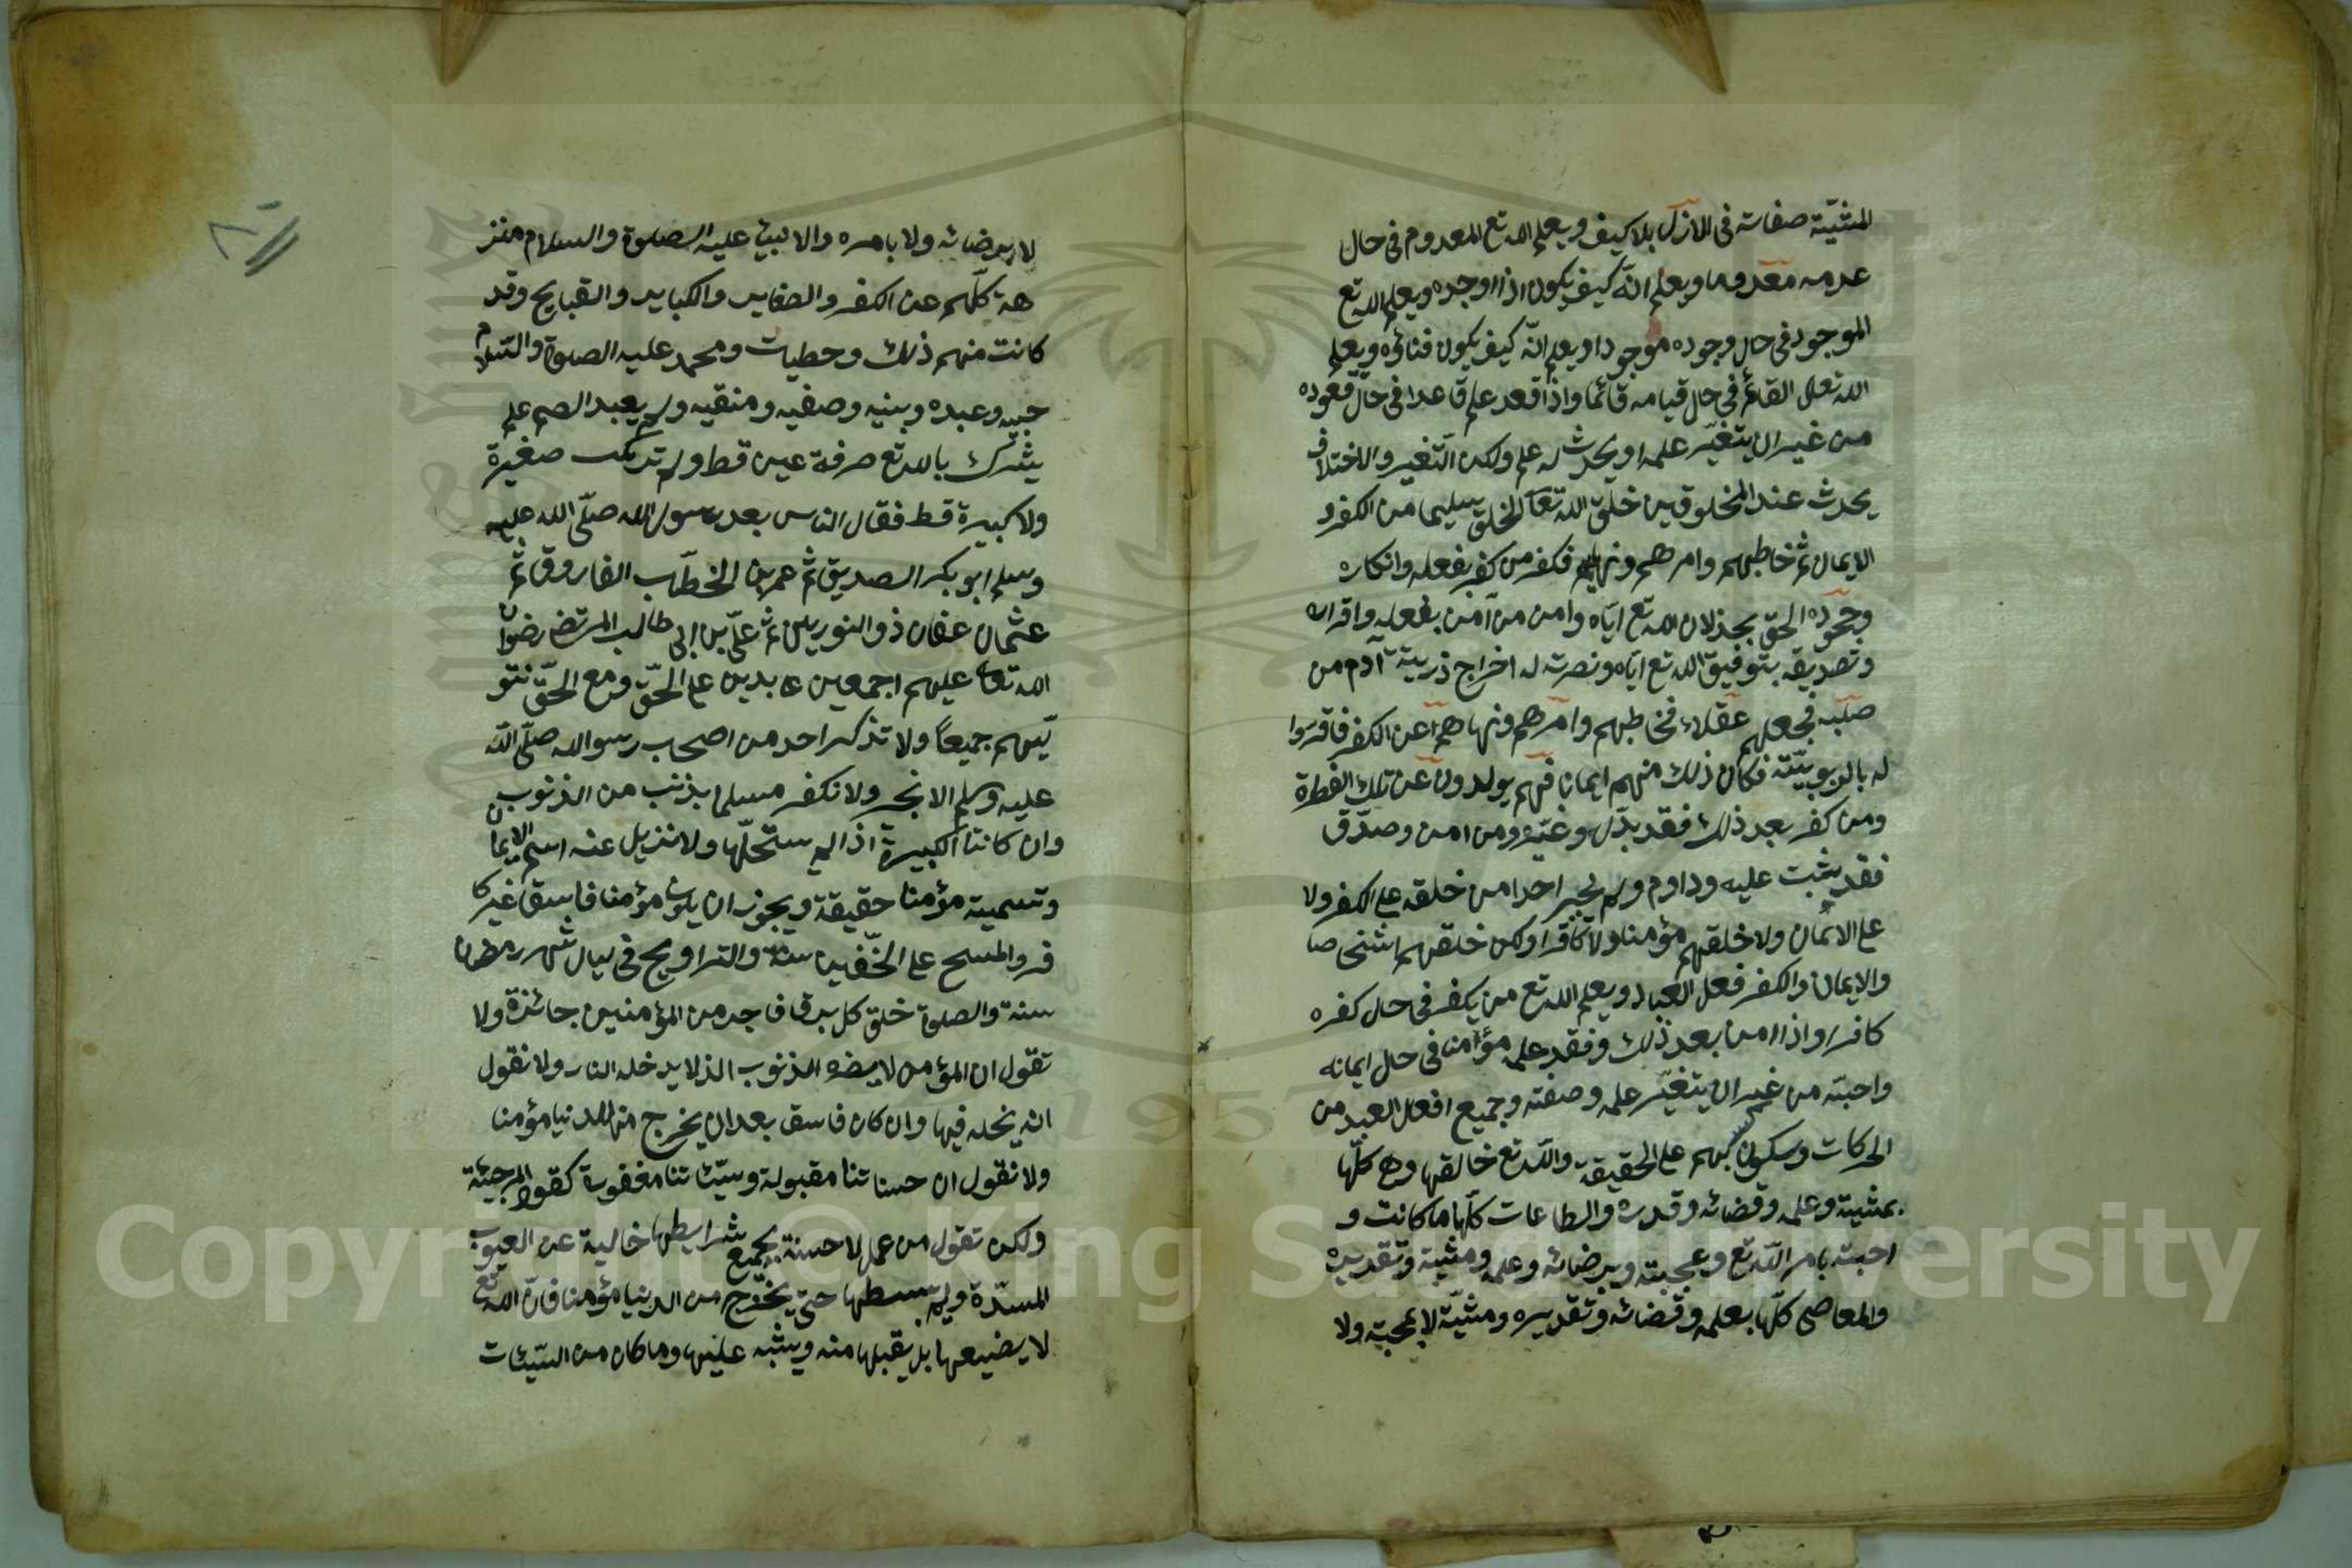 المشيّة صفاته فى الازل بلا كيف ويعلم الله تع المعدوم فى حال
عدمه معدوما ويعلم انّه كيف يكون اذا اوجده ويعلم الله تع
الموجود فى حال وجوده موجودا ويعلم انّه كيف يكون فناؤه ويعلم
الله تعلى القائم فى حال قيامه قائما واذا قعد علم قاعدا فى حال قعوده
من غير ان يتغيّر علمه او يحدث له علم ولكن التّغير والاختلاف
يحدث عند المخلوقين خلق الله تعا الخلق سليما من الكفر و
الايمان ثم خاطبهم وامرهم ونهيهم فكفر من كفر بفعله وانكاره
وجحوده الحقّ بخذلان الله تع ايّاه وامن من آمن بفعله واقراره
وتصديقه بتوفيق الله تع ايّاه ونصرته له اخراج ذرية آدم من
صلبه فجعلهم عقلاء فخاطبهم وامرهم ونهاهم عن الكفر فاقرّوا
له بالربوبيّته فكان ذلك منهم ايمانا فهم يولدون عن تلك الفطرة
ومن كفر بعد ذلك فقد بدّل وغيّره ومن امن وصدّق
فقد يثبت عليه وداوم ولم يجبر احدا من خلقه على الكفر ولا
على الايمان ولا خلقهم مؤمنا ولا كافرا ولكن خلقهم اشخى صا
والايمان والكفر فعل العباد ويعلم الله تع من يكفر فى حال كفره
كافرا واذا امن بعد ذلك وفقد علمه مؤمنا فى حال ايمانه
واحبّته من غير ان يتغيّر علمه وصفته وجميع افعل العبد من
الحركات وسكون كسبهم على الحقيقة والله تع خالقها وهى كلّها
بمشيته وعلمه وقضائه وقدره والطاعات كلّها ما كانت و
احبته بامر الله تع وبمحبته وبرضائه وعلمه ومشيّة وتقديره
والمعاصى كلّها بعلمه وقضائه وتقديره ومشيّة لا بمحبته ولا
لا برضائه ولا بامره والانبيئ عليه الصلوة والسلام منز
هة كلّهم عن الكفر والصغاير والكباير والقبايح وقد
كانت منهم ذلك وخطيات ومحمد عليه الصلوة والسّلام
حبيه وعبده وبنيه وصفيه ومنقيه ولم يعبد الصم علم
يشرك بالله تع صرفة عين قط ولم تركب صغيرة
ولا كبيرة قط فقال الناس بعد رسول الله صلّى الله عليه
وسلم ابو بكر الصديق ثم عمر بن الخطّاب الفاروق ثم
عثمان عفان ذو النورين ثم علىّ بن ابى طالب المرتضى رضوان
الله تعا عليهم اجمعين عابدين على الحقّ ومع الحقّ نتو
لّيهم جميعاً ولا تذكر احد من اصحاب رسوالله صلّى الله
عليه وسلم الا نجر ولا نكفر مسلما بذنب من الذنوب
وان كانتا الكبيرة اذا لم ستحلّها ولا نزيل عنه اسم الايمان
وتسمية مؤمنا حقيقة ويجوز ان يكون مؤمنا فاسقا غير كا
فر والمسح على الخّفين سنة والتراويح فى ليال شهر رمضان
سنة والصلوة خلق كل برق فاجر من المؤمنين جائزة ولا
تقول ان المؤمن لا يضره الذنوب الذ لا يدخله النار ولا نقول
انه يخلد فيها وان كان فاسق بعد ان يخرج من الدنيا مؤمنا
ولا نقول ان حسناتنا مقبولة وسيّئاتنا مغفورة كقول المرجئة
ولكن تقول من عملها حسنة بجميع شرايطها خالية عن العيوب
المسدّة ولم يبسطها حتى يخرج من الدنيا مؤمنا فانّ الله تع
لا يضيعها بل يقبلها منه ويثبه عليها وما كان من السّيّئات
Copyright © King Saud University
1957